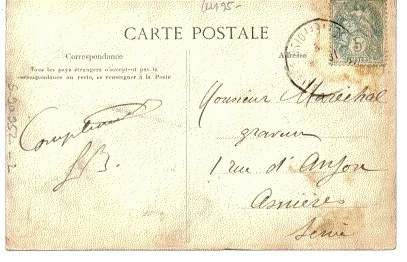 CARTE POSTALE
Correspondance
Tous les pays étrangers n'acceptent pas la
correspondance au recto, se renseigner à la Poste
Adresse
Compliments
Monsieur Maréchal
graveur
1 rue d'Anjou
Asnières
Seine